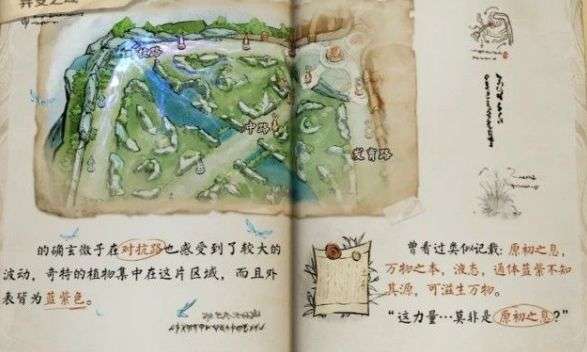 抗路
中路
发育路
的确玄微子在对抗路也感受到了较大的
波动，奇特的植物集中在这片区域，而且外
表皆为蓝紫色。
曾看过类似记载：原初之息，
万物之本，液态，通体蓝紫不知
其源，可滋生万物。
“这力量…莫非是原初之息？”